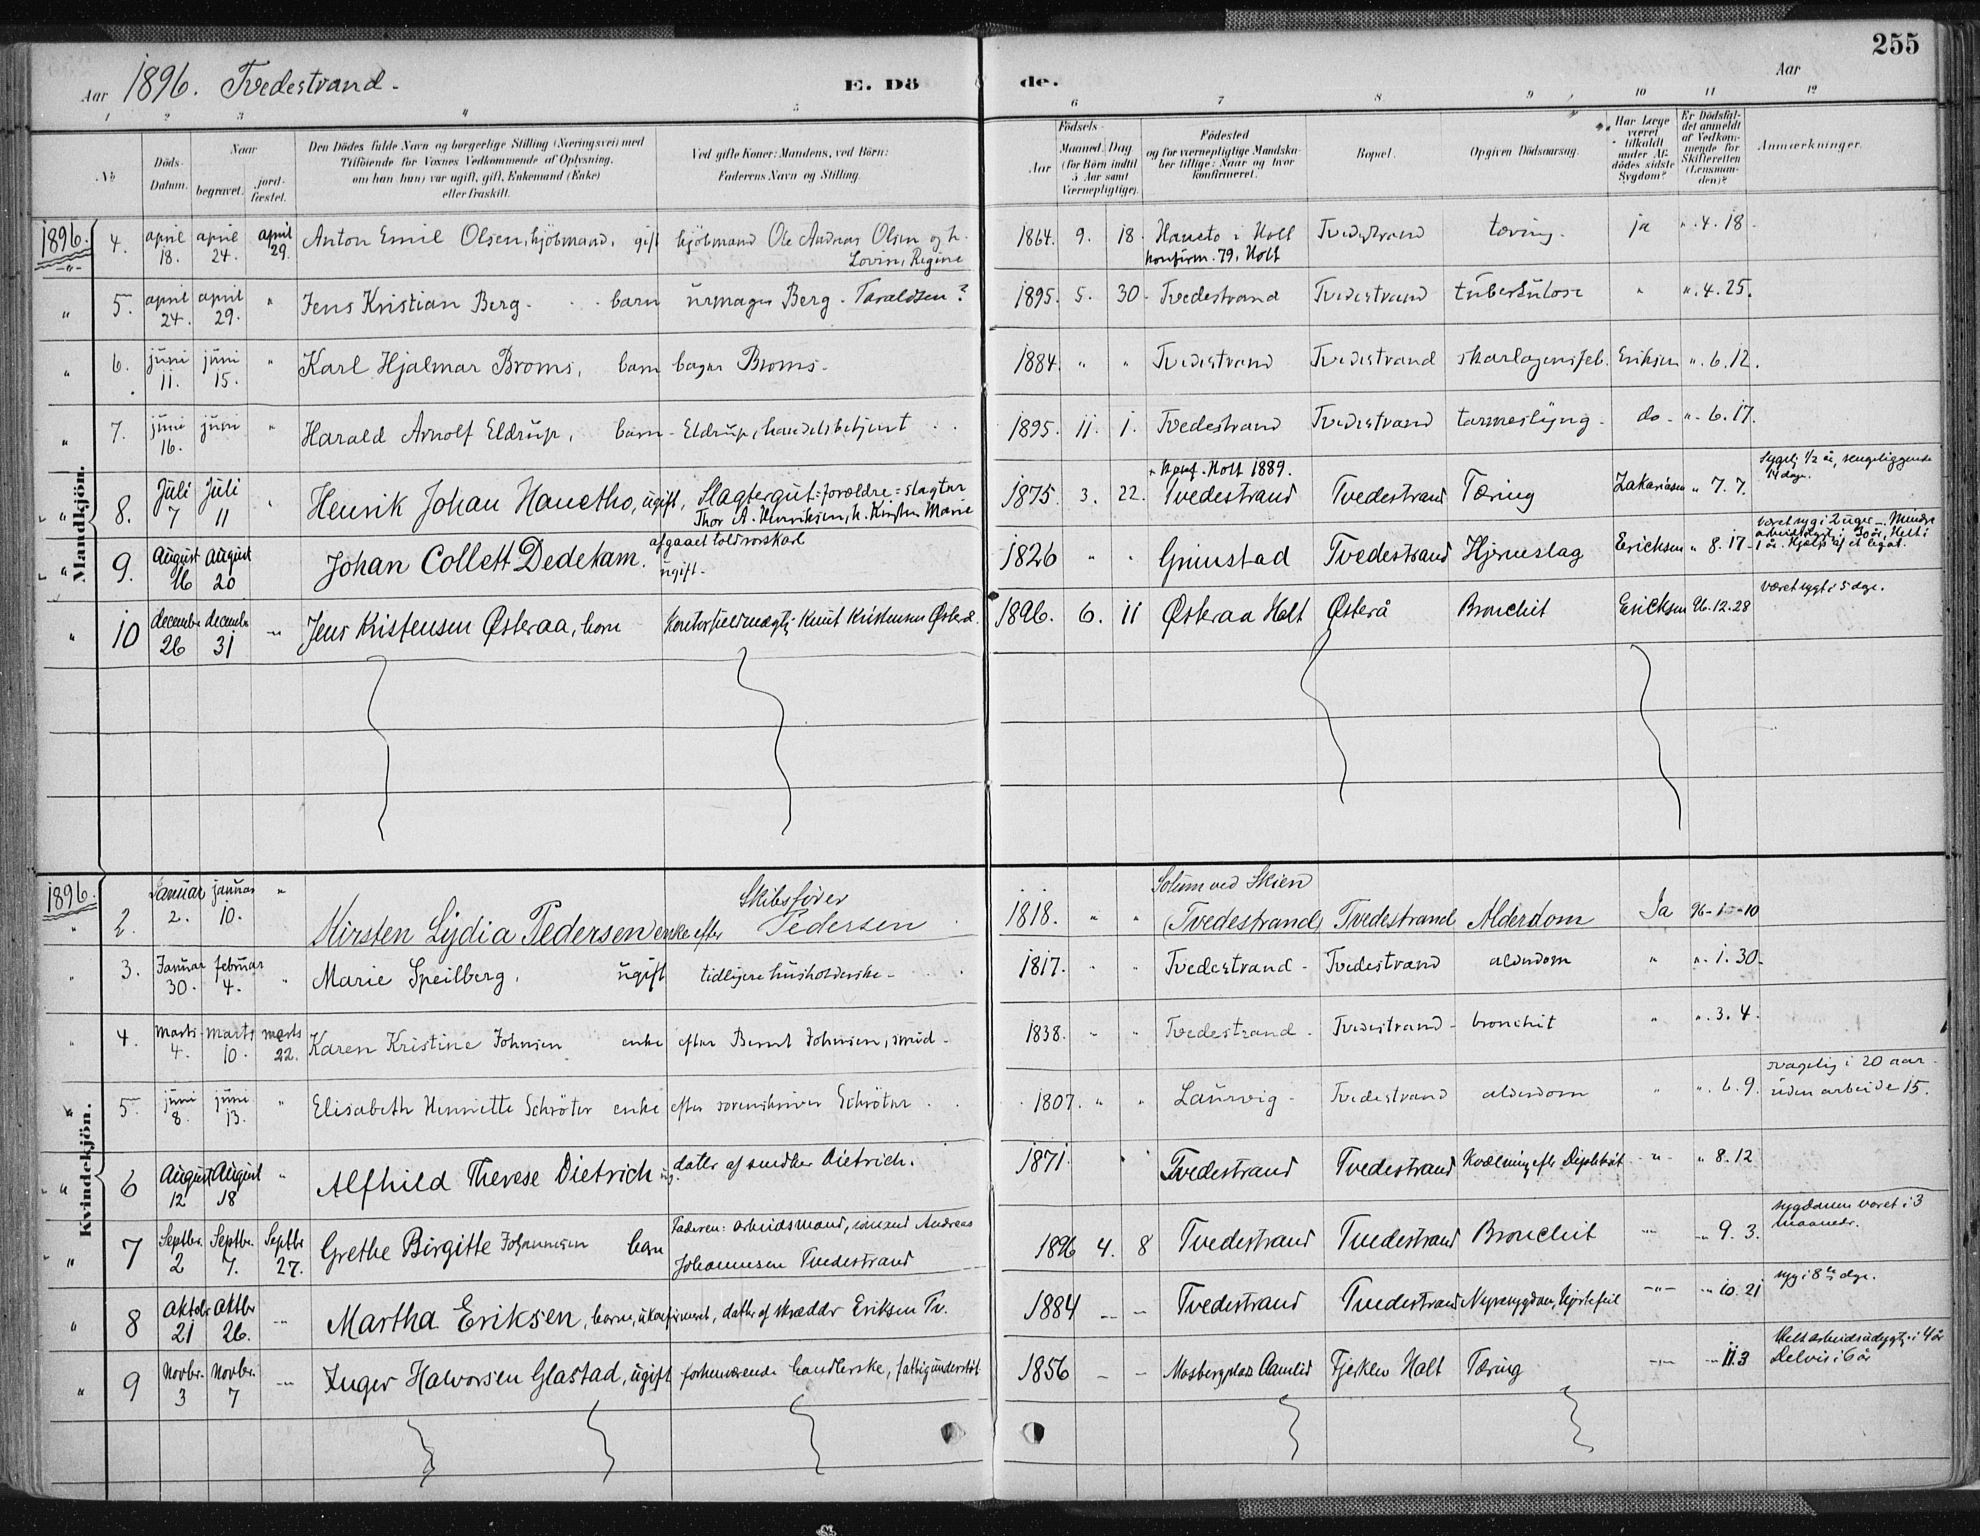 255
Aar 1896. Tvedestrand. E. Dö de. Aar
1 2 3 4 5 6 7 8 9 10 11 12
No Döds-Datum. Naar begravet. jordfæstet. Den Dödes fulde Navn og borgerlige Stilling (Næringsvei) med Tilföiende for Voxnes Vedkommende af Oplysning, om han (hun) var ugift, gift, Enkemand (Enke) eller fraskilt. Ved gifte Koner: Mandens, ved Börn: Faderens Navn og Stilling. Födsels- Aar Maaned. Dag (for Börn indtil 5 Aar samt Værnepligtige). Födested og for værnepligtige Mandskaber tillige: Naar og hvor konfirmeret. Bopæl. Opgiven Dödsaarsag. Har Læge været tilkaldt under Afdödes sidste Sygdom? Er Dödsfaldet anmeldt af Vedkommende for Skifteretten (Lensmanden)? Anmærkninger.
Mandkjön.
1896. 4. april 18. april 24. april 29. Anton Emil Olsen, kjöbmand, gift kjöbmand Ole Andreas Olsen og h. Lovin, Regine 1864. 9. 18. Haueto i Holt konfirm. 79, Holt Tvedestrand tæring. ja ". 4. 18.
" 5. april 24. april 29. " Jens Kristian Berg. barn urmager Berg. Taraldsen? 1895. 5. 30. Tvedestrand Tvedestrand tuberkulose " ". 4. 25.
" 6. juni 11. juni 15. " Karl Hjalmar Broms, barn bager Broms. 1884. " " Tvedestrand Tvedestrand skarlagensfeb. Eriksen ". 6. 12.
" 7. juni 16. juni " Harald Arnolf Eldrup, barn. Eldrup, handelsbetjent 1895. 11. 1. Tvedestrand Tvedestrand tarmeslyng. do. ". 6. 17.
" 8. Juli 7 Juli 11 " Henrik Johan Hauetho, ugift, Slagtergut = forældre = slagter Thor A. Henriksen, h. Kirsten Marie 1875 3. 22. + konf. Holt 1889. Tvedestrand Tvedestrand Tæring Zakariasen " 7. 7. Sygelig 1/2 år, sengeliggende 14 dage.
" 9. August 16 August 20 Johan Collett Dedekam. afgaaet toldrorskarl ugift. 1826 " " Grimstad Tvedestrand Hjerneslag Ericksen " 8. 17. været syg i 2 uger. Mindre arbeidsdygtig i 30 år, Helt i 1 år. Hjælp af et legat.
" 10 december 26 decembr 31 " Jens Kristensen Østeraa, barn Kontorfuldmægtig Knut Kristensen Østerå. 1896. 6. 11 Østeraa Holt Østerå Bronchit Ericksen 96. 12. 28 Været sygt i 5 dge.
Kvindekjön.
1896. " 2. Januar 2. januar 10. " Kirsten Lydia Pedersen enke efter Skibsfører Pedersen 1818. " " Solum ved Skien (Tvedestrand) Tvedestrand Alderdom Ja 96-1-10
" 3. Januar 30. februar 4. " Marie Speilberg, ugift tidligere husholderske. 1817. " " Tvedestrand. Tvedestrand alderdom " ". 1. 30.
" 4. marts 4. marts 10. marts 22. Karen Kristine Johnsen enke efter Bernt Johnsen, smed. 1838. " " Tvedestrand. Tvedestrand. bronchit " ". 3. 4.
" 5. juni 8. juni 13. " Elisabeth Henriette Schröter enke efter sorenskriver Schröter 1807. " " Laurvig. Tvedestrand alderdom " ". 6. 9. svagelig i 20 aar. uden arbeide 15.
" 6 August 12 August 18 " Alfhild Therese Dietrich ug. datter af snedker Dietrich. 1871. Tvedestrand Tvedestrand Kvælning efter Difterit " " 8. 12
" 7 Septbr. 2 Septbr. 7. Septbr 27. Grethe Birgitte Johannesen barn Faderen: arbeidsmand, sömand Andreas Johannesen Tvedestrand 1896 4. 8 Tvedestrand Tvedestrand Bronchit " " 9. 3. sygdommen varet i 3 maaneder.
" 8 Oktobr 21 Oktbr 26. " Martha Eriksen, barn, ukonfirmeret, datter af skrædder Eriksen Tv. 1884 " " Tvedestrand Tvedestrand Nyresygdom, Hjertefeil " " 10. 21 syg i 8te dge.
" 9 Novbr. 3 Novbr. 7 " Inger Halvorsen Glastad, ugift forhenværende handlerske, fattigunderstöt 1856 " " Mosbergplds Aamlid Fjerklev Holt Tæring " " 11. 3 Helt arbeidsudygtig i 4 år Delvis i 6 år